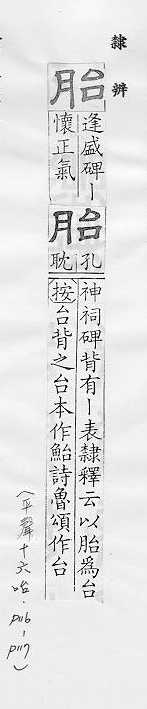 隸辨
胎
逢盛碑丨
懷正氣
胎
孔
耽
神祠碑背有丨表隸釋云以胎為台
按台背之台本作鮐詩魯頌作台
(平聲十六咍．p116-p117)